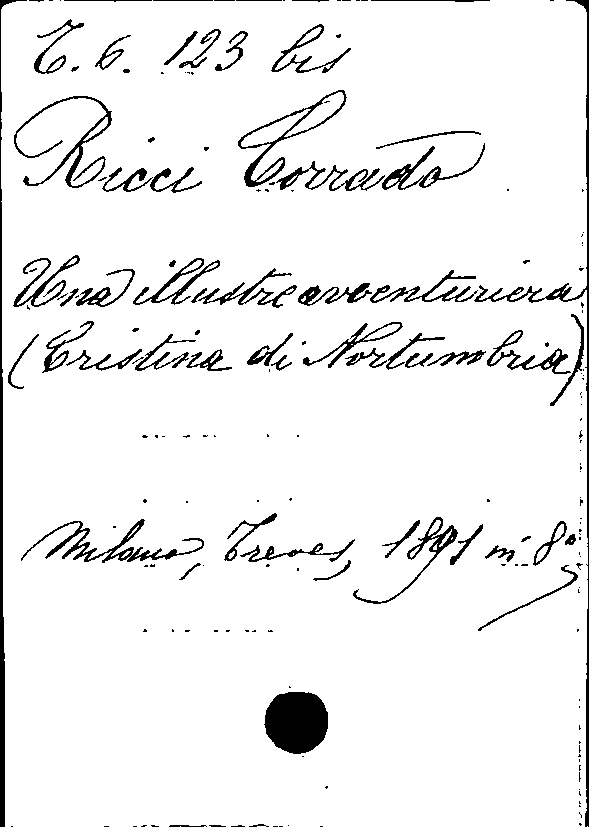 T. 6. 123 bis
Ricci Corrado
Una illustre avventuriera
(Cristina di Nortumbria)
Milano, Treves, 1891 in 8º